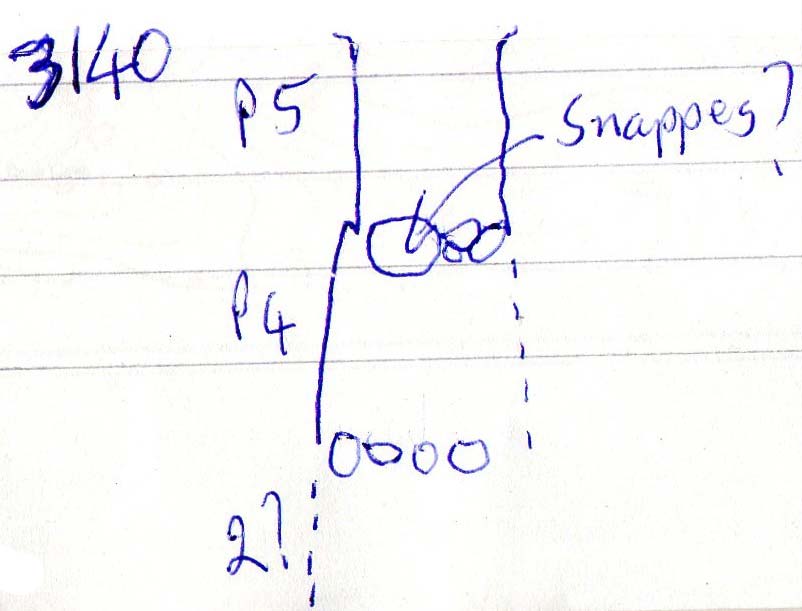 3140
P5
Snappes?
P4
2?